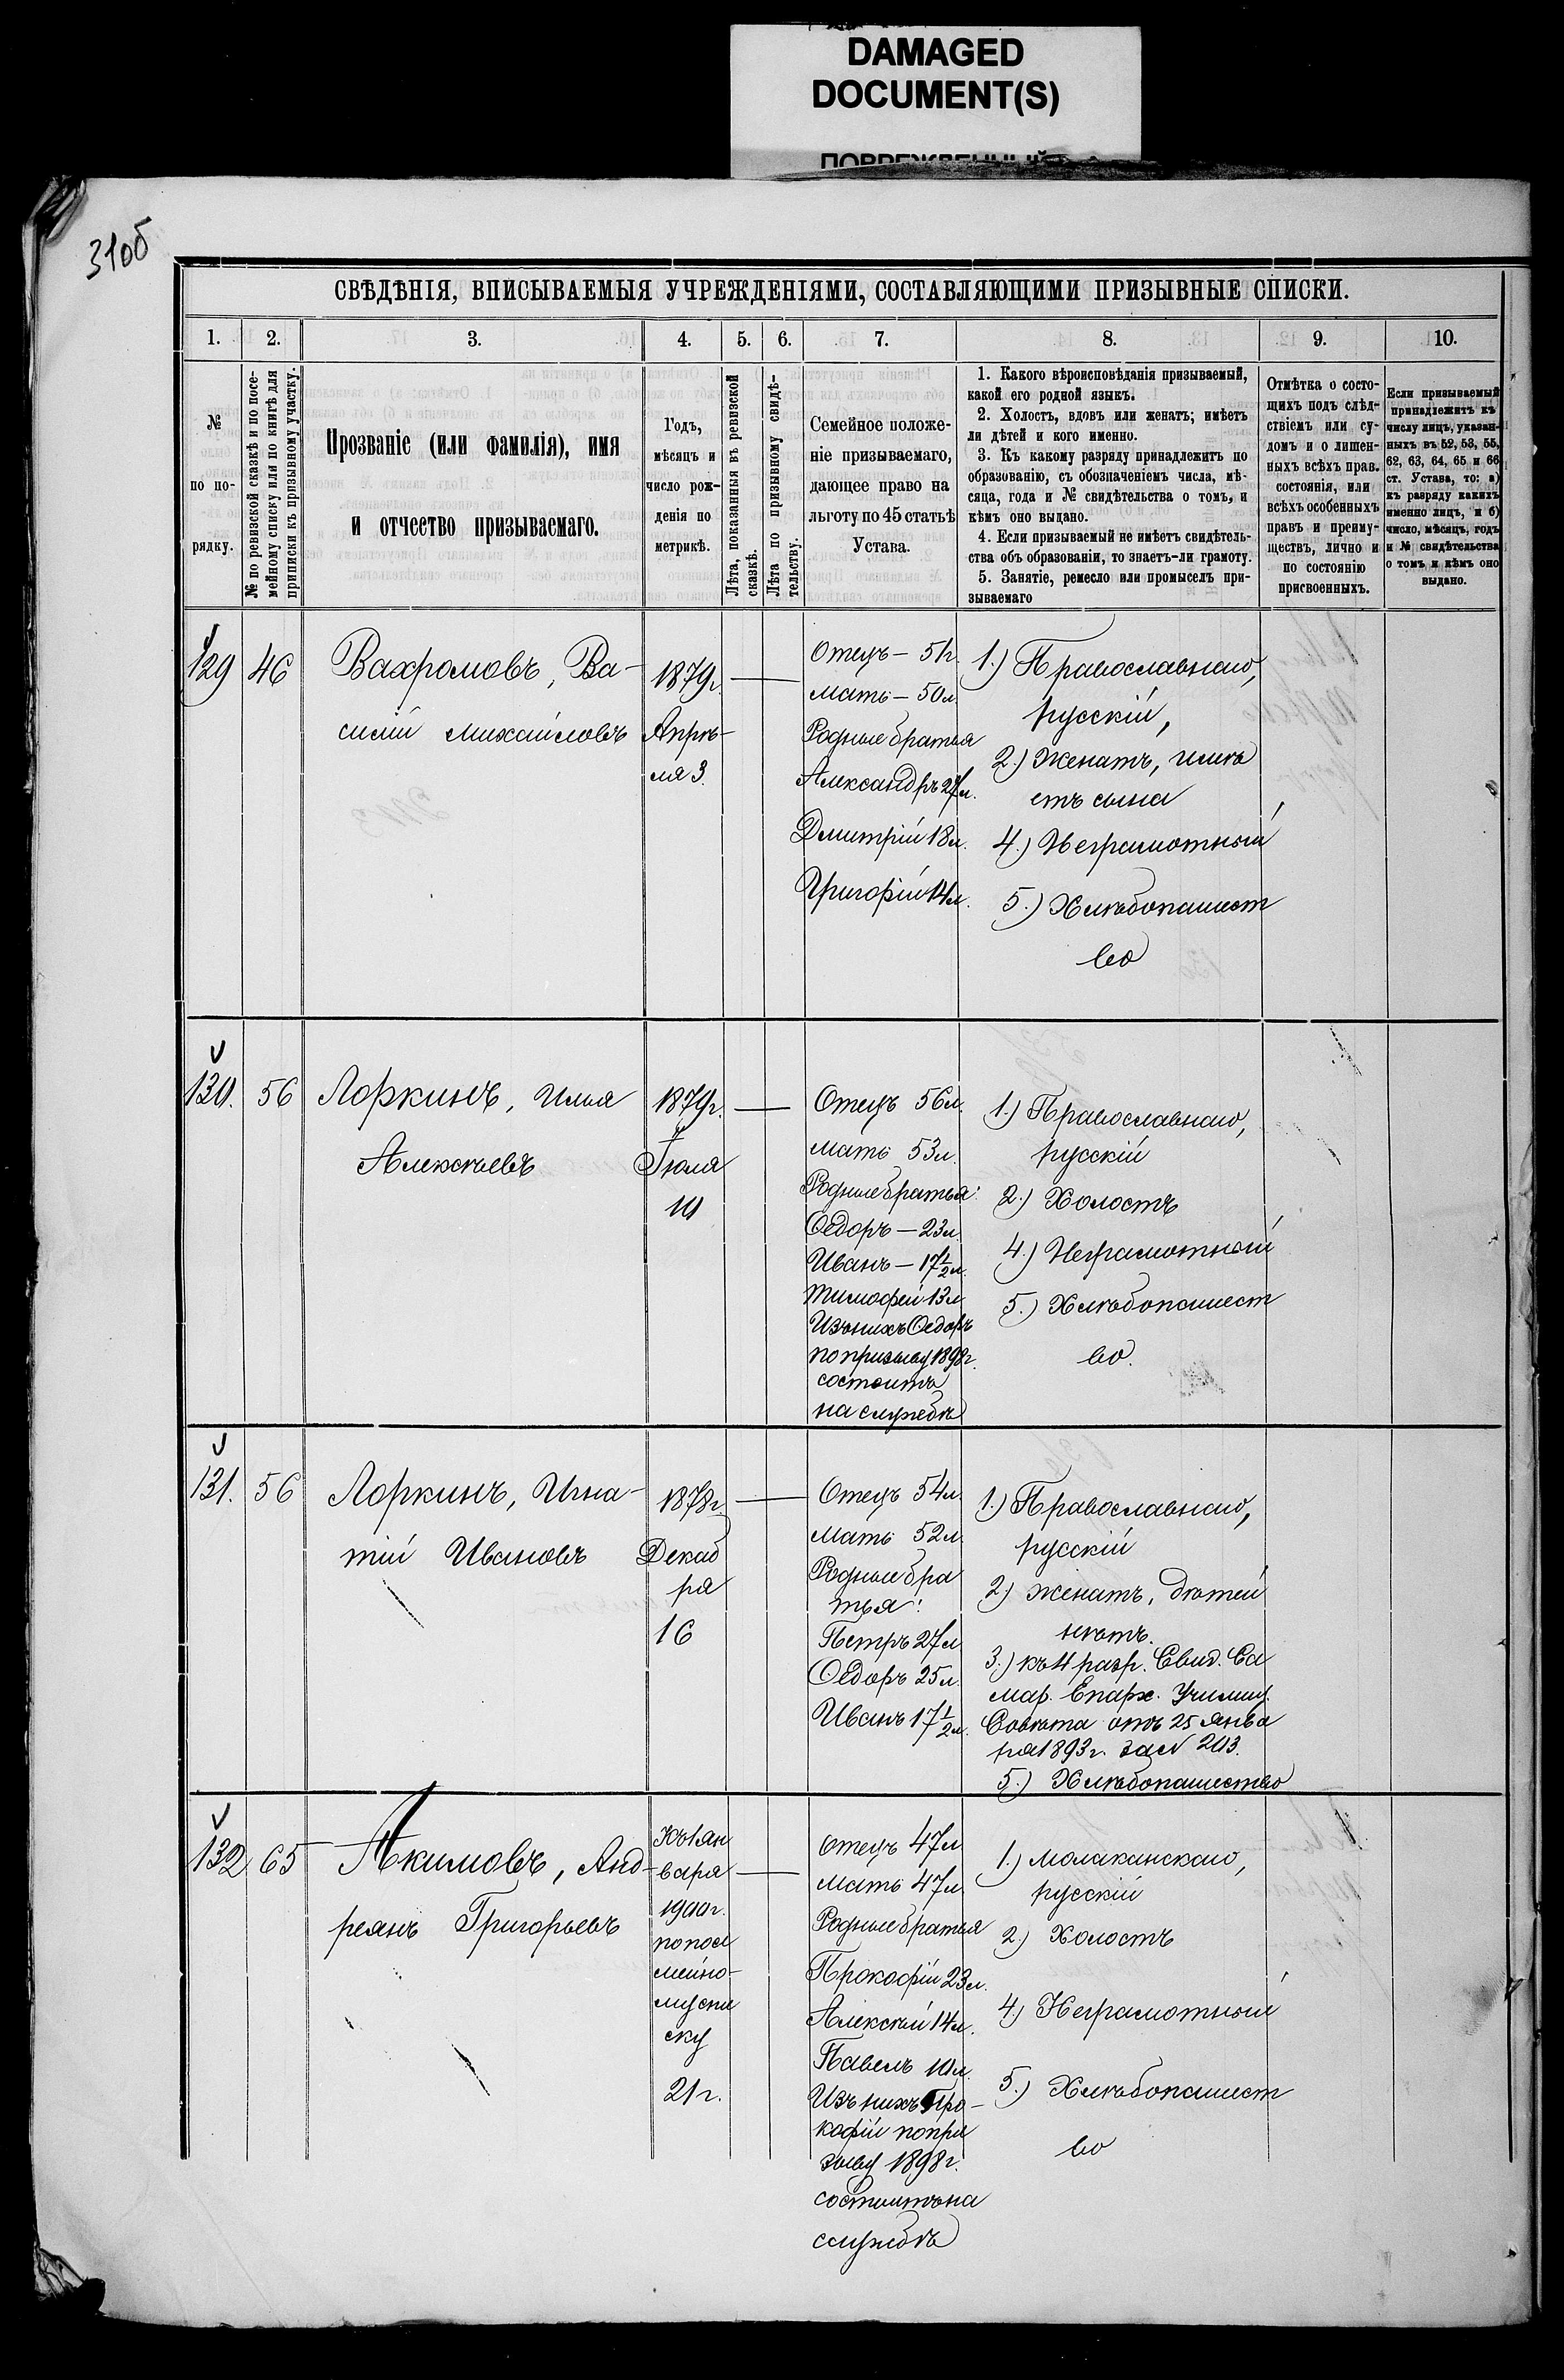 DAMAGED
DOCUMENT(S)
310б
СВѢДѢНІЯ, ВПИСЫВАЕМЫЯ УЧРЕЖДЕНІЯМИ, СОСТАВЛЯЮЩИМИ ПРИЗЫВНЫЕ СПИСКИ.
1. 2. 3. 4. 5. 6. 7. 8. 9. 10.
№
по по-
рядку.
№ по ревизской сказкѣ и по посе-
мейному списку или по книгѣ для
приписки къ призывному участку.
Прозваніе (или фамилія), имя
и отчество призываемаго.
Годъ,
мѣсяцъ и
число рож-
денія по
метрикѣ.
Лѣта, показанныя въ ревизской
сказкѣ.
Лѣта по призывному свидѣ-
тельству.
Семейное положе-
ніе призываемаго,
дающее право на
льготу по 45 статьѣ
Устава.
1. Какого вѣроисповѣданія призываемый,
какой его родной языкъ.
2. Холостъ, вдовъ или женатъ; имѣетъ
ли дѣтей и кого именно.
3. Къ какому разряду принадлежитъ по
образованію, съ обозначеніемъ числа, мѣ-
сяца, года и № свидѣтельства о томъ, и
кѣмъ оно выдано.
4. Если призываемый не имѣетъ свидѣтель-
ства объ образованіи, то знаетъ-ли грамоту.
5. Занятіе, ремесло или промыселъ при-
зываемаго
Отмѣтка о состо-
щихъ подъ слѣд-
ствіемъ или су-
домъ и о лишен-
ныхъ всѣхъ прав.
состоянія, или
всѣхъ особенныхъ
правъ и преиму-
ществъ, лично и
по состоянію
присвоенныхъ.
Если призываемый
принадлежитъ къ
числу лицъ, указан-
ныхъ въ 52, 53, 55,
62, 63, 64, 65 и 66
ст. Устава, то: а)
къ разряду какихъ
именно лицъ, и б)
число, мѣсяцъ, годъ
и № свидѣтельства
о томъ и кѣмъ оно
выдано.
129 46
Вахромовъ, Ва-
силій Михайловъ
1879г.
Апрѣ-
ля 3.
Отецъ – 51г.
Мать – 50л.
Родные братья
Александръ 27л.
Дмитрій 18л.
Григорій 14л.
1.) Православнаго,
русскій,
2.) Женатъ, имѣ
етъ сына
4.) Неграмотный
5.) Хлѣбопашест
во
130. 56
Лоркинъ, Илья
Алексѣевъ
1879г.
Іюля
10
Отецъ 56л.
Мать 53л.
Родные братья:
Ѳедоръ – 23л.
Иванъ – 17 1/2 л.
Тимофей 13л
Изъ нихъ Ѳедоръ
по призыву 1898г.
состоитъ
на службѣ
1.) Православнаго,
русскій
2.) Холостъ
4.) Неграмотный
5.) Хлѣбопашест
во.
131. 56
Лоркинъ, Игна-
тій Ивановъ
1878г.
Декаб
ря
16
Отецъ 54л.
Мать 52л.
Родные бра
тья:
Петръ 27л
Ѳедоръ 25л.
Иванъ 17 1/2 л.
1.) Православнаго,
русскій
2.) Женатъ, дѣтей
нѣтъ.
3.) къ 4 разр. Свид. Са
мар. Епарх. Училищ.
Совѣта отъ 25 Янва
ря 1893г. за № 203.
5.) Хлѣбопашество
132 65
Акимовъ, Анд-
реянъ Григорьевъ
Къ 1 Ян
варя
1900г.
по посе
мейно-
му спи
ску
21г.
Отецъ 47л
Мать 47л
Родные братья
Прокофій 23л.
Алексѣй 14л.
Павелъ 10л.
Изъ нихъ Про-
кофій по при
зыву 1898г.
состоитъ на
службѣ
1.) Молаканскаго,
русскій
2.) Холостъ
4.) Неграмотный
5.) Хлѣбопашест
во